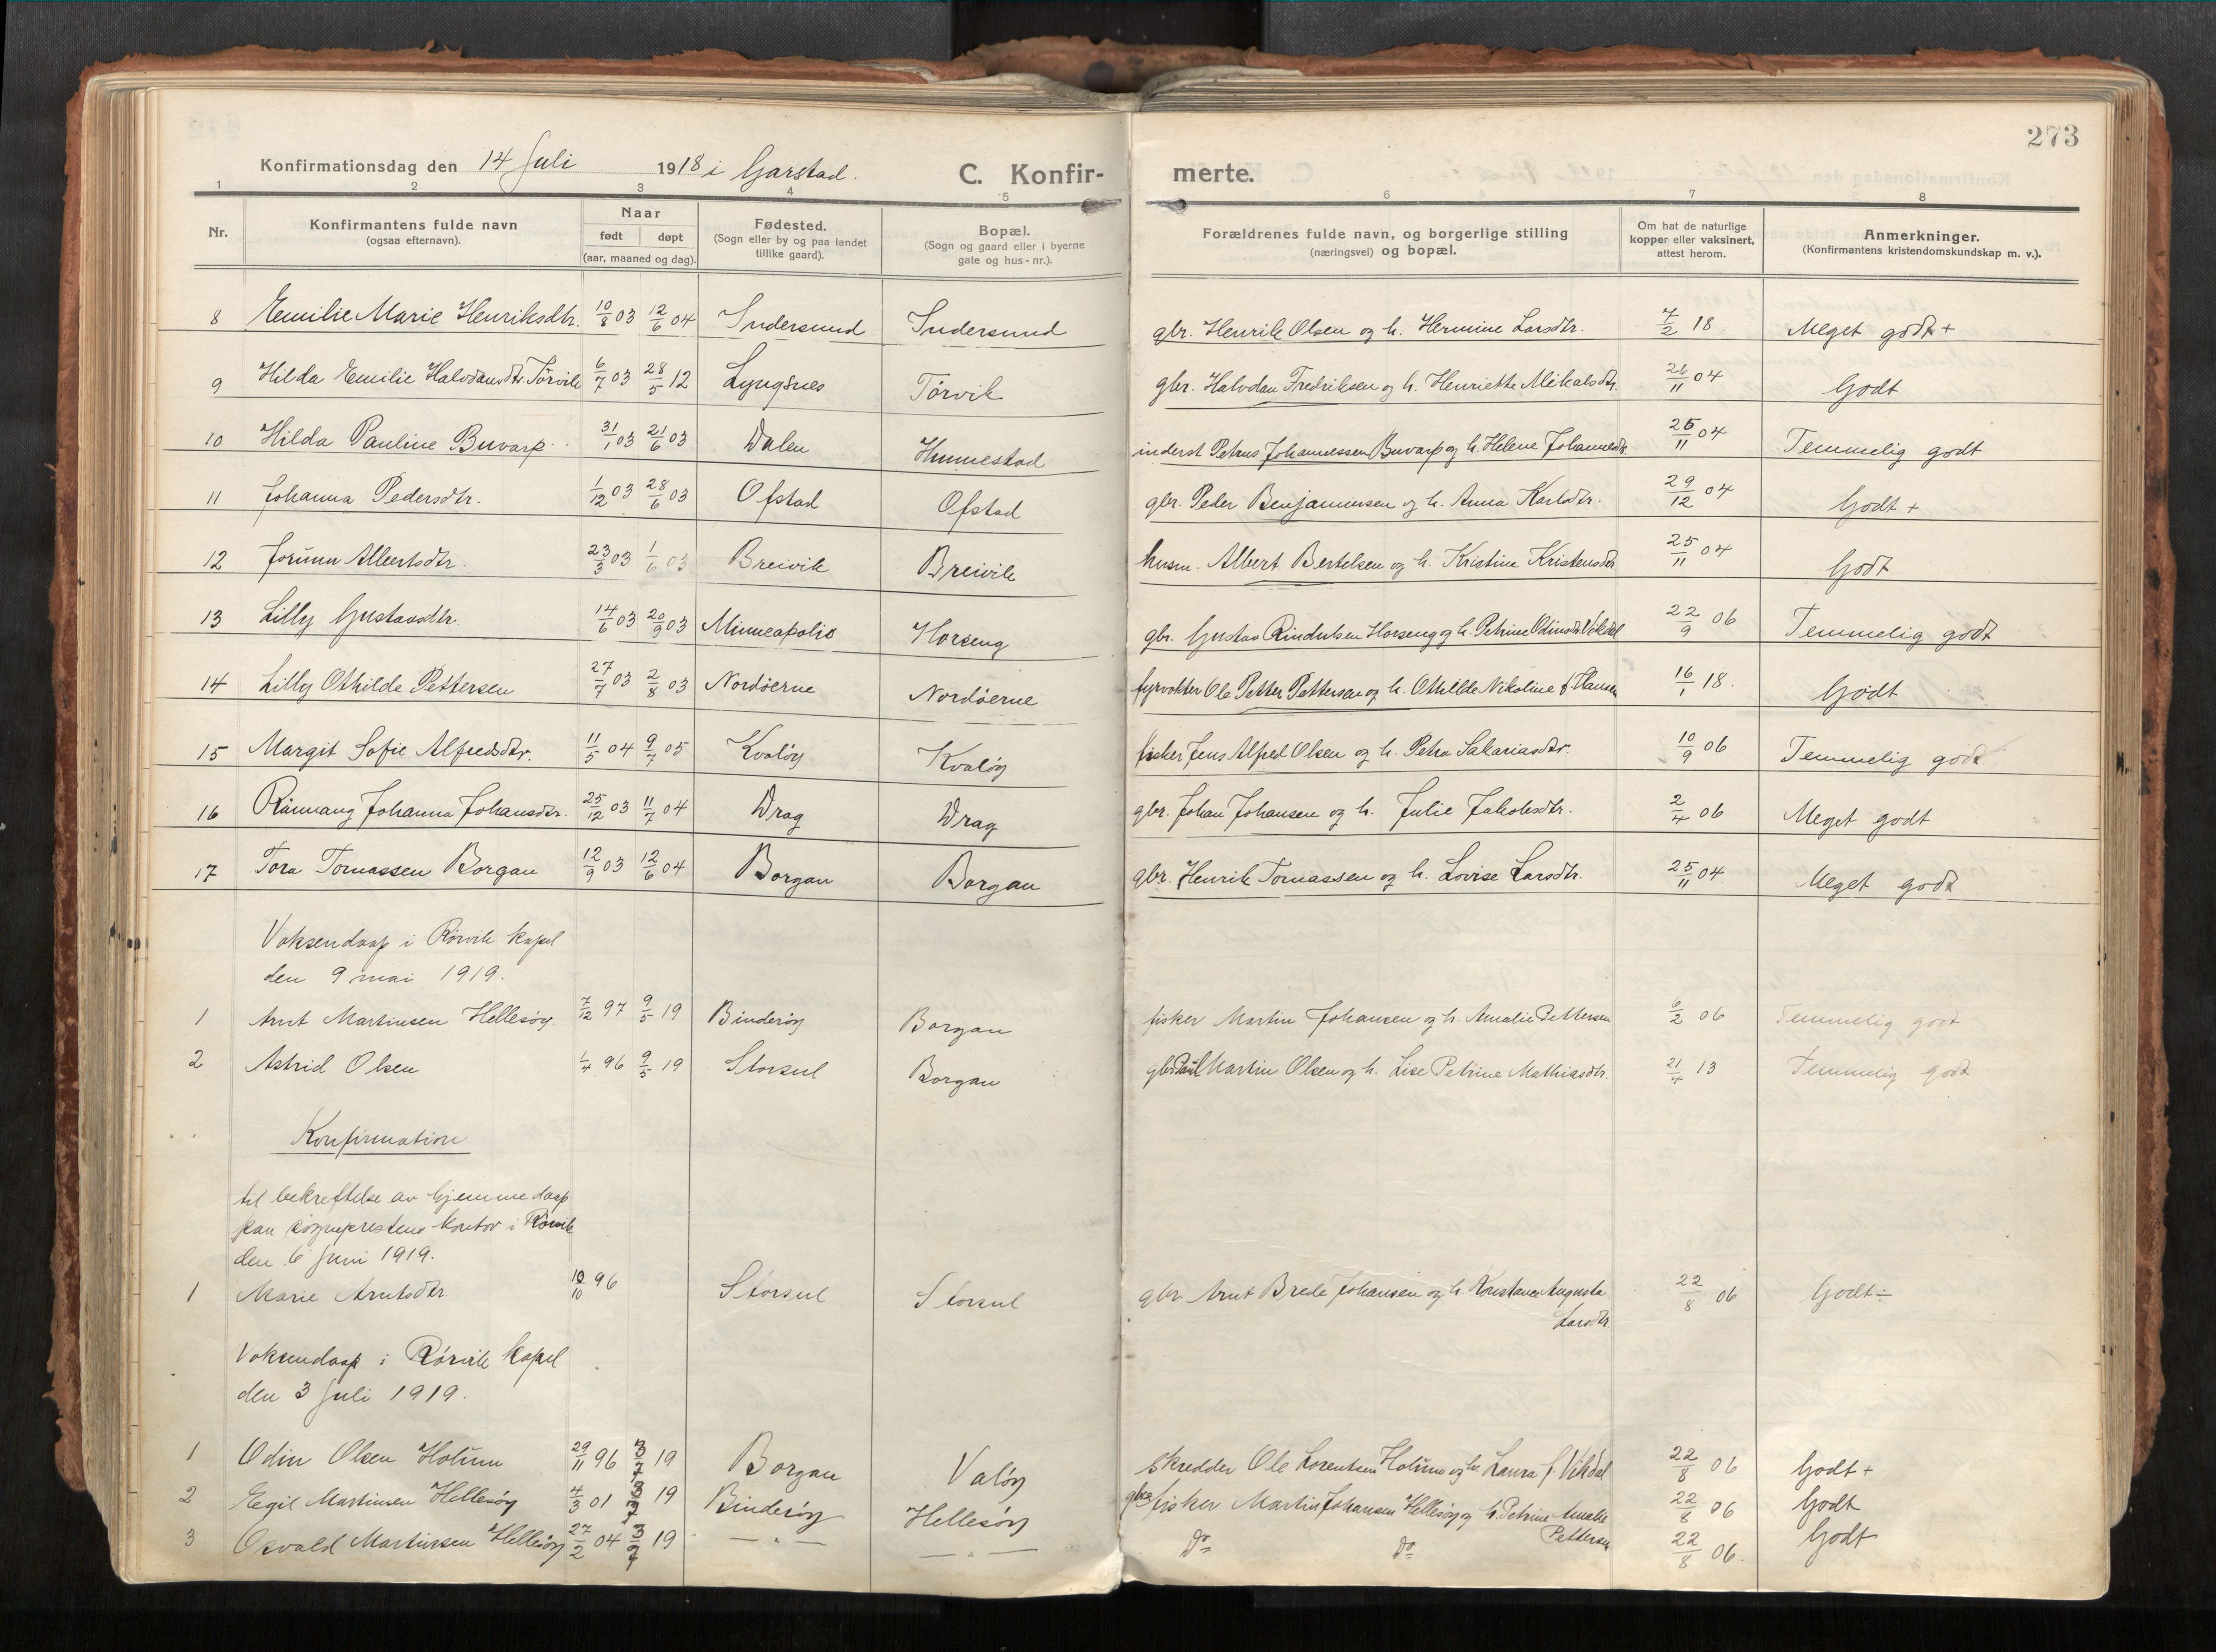 273
Konfirmationsdag den 14 Juli 1918 i Garstad. C. Konfirmerte.
1 2 3 4 5 6 7 8
Nr. Konfirmantens fulde navn (ogsaa efternavn). Naar født døpt (aar, maaned og dag). Fødested. (Sogn eller by og paa landet tillike gaard). Bopæl. (Sogn og gaard eller i byerne gate og hus-nr.). Forældrenes fulde navn, og borgerlige stilling (næringsvei) og bopæl. Om hat de naturlige kopper eller vaksinert, attest herom. Anmerkninger. (Konfirmantens kristendomskundskap m. v.).
8 Emilie Marie Henriksdtr. 10/8 03 12/6 04 Indersund Indersund gbr. Henrik Olsen og h. Hermine Larsdtr. 7/2 18 Meget godt +
9 Hilda Emilie Halvdansdtr. Törvik 6/7 03 28/5 12 Lyngsnes Törvik gbr. Halvdan Fredriksen og h. Henriette Mikalsdtr. 26/11 04 Godt
10 Hilda Pauline Buvarp 31/1 03 21/6 03 Dalen Hunnestad inderst Petrus Johannessen Buvarp og h. Helene Johannesdtr. 25/11 04 Temmelig godt
11 Johanna Pedersdtr. 1/12 03 28/6 03 Ofstad Ofstad gbr. Peder Benjaminsen og h. Anna Karlsdtr. 29/12 04 Godt +
12 Jorunn Albertsdtr. 23/3 03 1/6 03 Breivik Breivik husm. Albert Bertelsen og h. Kristine Kristensdtr 25/11 04 Godt
13 Lilly Gustavsdtr. 14/6 03 20/9 03 Minneapolis Horseng gbr. Gustav Rindulsen Horseng og h. Petrine Odinsdtr. Vikdal 22/9 06 Temmelig godt
14 Lilly Othilde Pettersen 27/7 03 2/8 03 Nordöerne Nordöerne fyrvokter Ole Petter Pettersen og h. Othilde Nikoline f. Hansen 16/1 18. Godt
15 Margit Sofie Alfredsdtr. 11/5 04 9/7 05 Kvalöy Kvalöy fisker Jens Alfred Olsen og h. Petra Sakariasdtr. 10/9 06 Temmelig godt
16 Rånnaug Johanna Johansdtr. 25/12 03 11/7 04 Drag Drag gbr. Johan Johansen og h. Julie Jakobsdtr. 2/4 06 Meget godt
17 Tora Tomassen Borgan 12/9 03 12/6 04 Borgan Borgan gbr. Henrik Tomassen og h. Lovise Larsdtr. 25/11 04 Meget godt
Voksendaap i Rörvik kapel
den 9 mai 1919.
1 Arnt Martinsen Hellesöy 7/12 97 9/5 19 Binderöy Borgan fisker Martin Johansen og h. Amalie Pettersen 6/2 06 Temmelig godt
2 Astrid Olsen 1/4 96 9/5 19 Storsul Borgan gbr. Paul Martin Olsen og h. Lise Petrine Mathiasdtr. 21/4 13 Temmelig godt
Konfirmation
til bekreftelse av hjemmedaap
paa sogneprestens kontor i Rörvik
den 6 Juni 1919.
1 Marie Arntsdtr. 10/10 96 Storsul Storsul gbr Arnt Brede Johansen og h. Kristanea Augusta 22/8 06 Godt ÷
Larsdtr.
Voksendaap i Rörvik kapel
den 3 Juli 1919.
1 Odin Olsen Holum 29/11 96 3/7 19 Borgan Valöy Skredder Ole Lorentsen Holum og h. Laura f. Vikdal 22/8 06 Godt +
2 Egil Martinsen Hellesöy 4/3 01 3/7 19 Binderöy Hellesöy gbr & fisker Martin Johansen Hellesöy og h. Petrine Amalie 22/8 06 Godt
Pettersen
3 Osvald Martinsen Hellesöy 27/2 04 3/7 19 — " — — " — Do Do 22/8 06. Godt